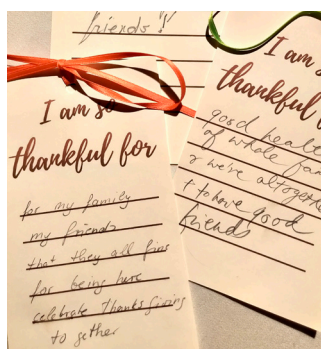 friends"!
I am so
thankful for
for my family
my friends
that they all fine
for being here
celebrate Thanks Giving
to gether
I am s
thankful
good healt
of whole fam
& we're altogethe
& to have good
friends